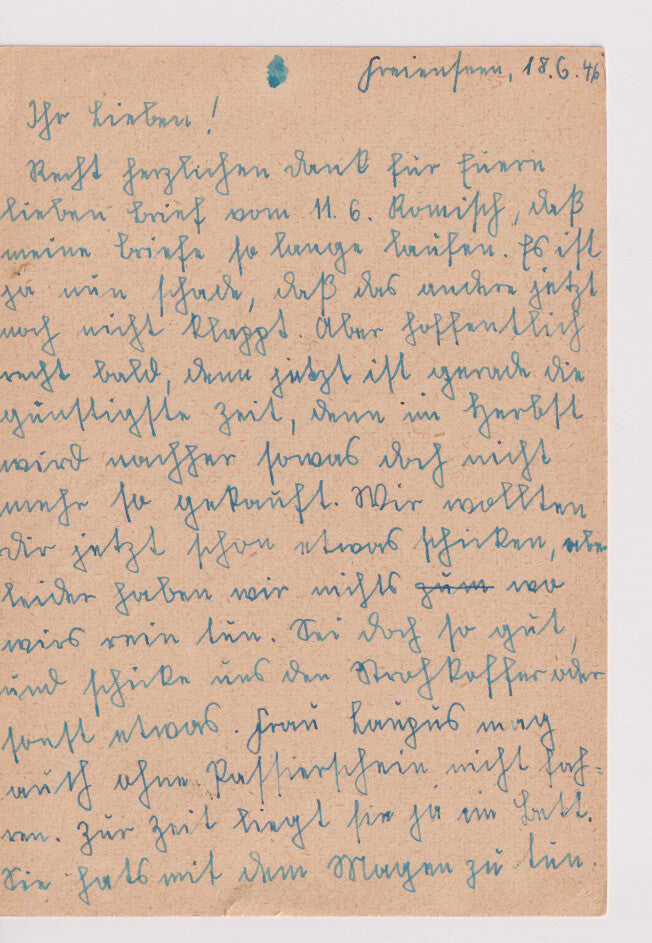 Freienseen, 18.6.46
Ihr Lieben!
Recht herzlichen Dank für Euern
lieben Brief vom 11.6. Komisch, daß
meine Briefe so lange laufen. Es ist
ja nun schade, daß das andere jetzt
noch nicht klappt. Aber hoffentlich
recht bald, denn jetzt ist gerade die
günstigste Zeit, denn im Herbst
wird nachher sowas doch nicht
mehr so gekauft. Wir wollten
Dir jetzt schon etwas schicken, aber
leider haben wir nichts zum wo
wirs rein tun. Sei doch so gut,
und schicke uns den Strohkoffer oder
sonst etwas. Frau Laupus mag
auch ohne Passierschein nicht fah-
ren. Zur Zeit liegt sie ja im Bett.
Sie hats mit dem Magen zu tun.